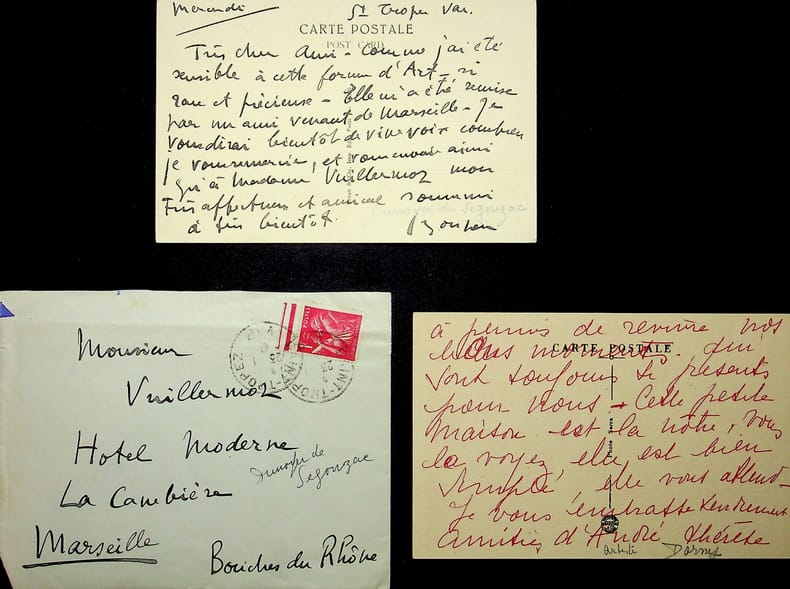 Mercredi St Tropez Var.
CARTE POSTALE
POST CARD
Très cher Ami - Comme j'ai été
sensible à cette forme d'Art - si
rare et précieuse - Elle m'a été remise
par un ami venant de Marseille - Je
vous dirai bientôt de vive voix combien
je vous remercie, et vous envoie ainsi
qu'à Madame Vuillermoz mon
très affectueux et amical souvenir
à très bientôt.
Dunoyer de Segonzac
Monsieur
Vuillermoz
Hotel Moderne
La Canebière
Marseille
Bouches du Rhône
Dunoyer de
Segonzac
SAINT-TROPEZ VAR
à permis de revivre nos
bons moments. qui
CARTE POSTALE
sont toujours si présents
pour nous - Cette petite
maison est la nôtre, vous
la voyez, elle est bien
simple, elle vous attend -
Je vous embrasse tendrement
amitiés d'André Thérèse
artiste Dorny